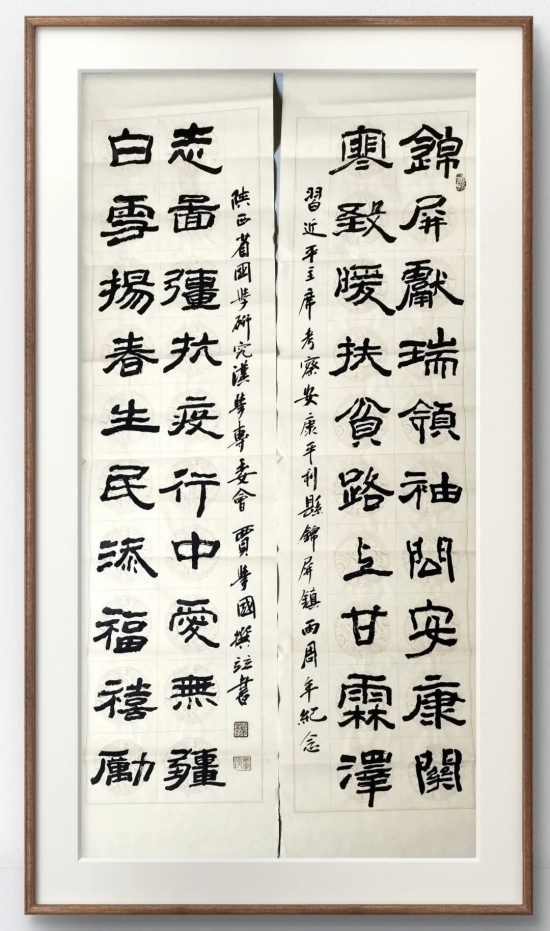 錦屏獻瑞領袖問安康關
寒致暖扶貧路上甘霖澤
習近平主席考察安康平利縣錦屏鎮兩周年紀念
白雪揚春生民添福禧勵
志圖彊抗疫行中愛無疆
陝西省國學研究漢學專委會 賈學國撰並書